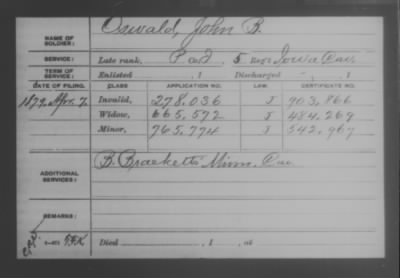 NAME OF SOLDIER: Oswald, John B.
SERVICE: Late rank, Pvt D, 5 Reg't Iowa Cav
TERM OF SERVICE: Enlisted , 1 Discharged , 1
DATE OF FILING. CLASS APPLICATION NO. LAW. CERTIFICATE NO.
1879, Apr. 7. Invalid, 278,036 J 903,866
Widow, 665,572 J 484,269
Minor, 765,774 J 542,967
ADDITIONAL SERVICES: B. Bracketts Minn. Cav
REMARKS:
Died , 1 , at